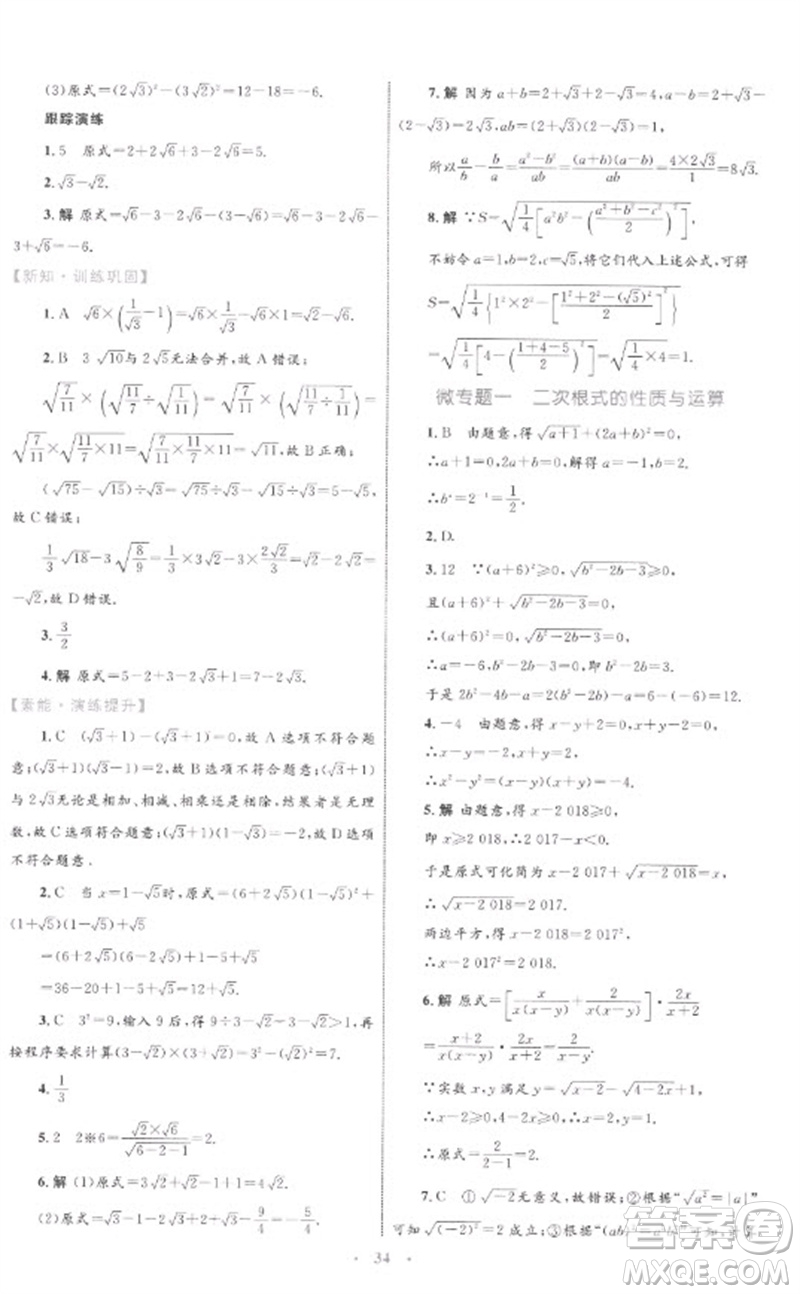 (3)原式=(2√3)²-(3√2)²=12-18=-6.
跟踪演练
1.5 原式=2+2√6+3-2√6=5.
2.√3-√2.
3.解 原式=√6-3-2√6-(3-√6)=√6-3-2√6-
3+√6=-6.
【新知·训练巩固】
1.A √6×(1/√3-1)=√6×1/√3-√6×1=√2-√6.
2.B 3√10与2√5无法合并,故A错误;
√(7/11)×(√(11/7)÷√(1/11))=√(7/11)×√(11/7×11)
=√(7/11×11/7×11)=√11,故B正确;
(√75-√15)÷√3=√75÷√3-√15÷√3=5-√5,
故C错误;
1/3√18-3√(8/9)=1/3×3√2-3×2√2/3=√2-2√2=
-√2,故D错误.
3.3/2
4.解 原式=5-2+3-2√3+1=7-2√3.
【素能·演练提升】
1.C (√3+1)-(√3+1)=0,故A选项不符合题
意;(√3+1)(√3-1)=2,故B选项不符合题意;(√3+1)
与2√3无论是相加、相减、相乘还是相除,结果都是无理
数,故C选项符合题意;(√3+1)(1-√3)=-2,故D选项
不符合题意.
2.C 当x=1-√5时,原式=(6+2√5)(1-√5)²+
(1+√5)(1-√5)
=(6+2√5)(6-2√5)+1-5+√5
=36-20+1-5+√5=12+√5.
3.C 3²=9,输入9后,得9÷3-√2=3-√2>1,再
按程序要求计算(3-√2)×(3+√2)=3²-(√2)²=7.
4.1/3
5.2 2※6=√2×√6/√(6-2-1)=2.
6.解 (1)原式=3-2√2+2√2-1+1=3.
(2)原式=√3-1-√3+1-9/4=-9/4.
7.解 因为a+b=2+√3+2-√3=4,a-b=(2+√3)-
(2-√3)=2√3,ab=(2+√3)(2-√3)=1,
所以a/b-b/a=(a²-b²)/ab=(a+b)(a-b)/ab=4×2√3/1=8√3.
8.解 ∵S=√(1/4[a²b²-((a²+b²-c²)/2)²]),
不妨令a=1,b=2,c=√5,将它们代入上述公式,可得
S=√(1/4{1²×2²-[(1²+2²-(√5)²)/2]²})
=√(1/4[4-((1+4-5)/2)²])=√(1/4×4)=1.
微专题一 二次根式的性质与运算
1.B 由题意,得√(a+1)+(2a+b)²=0,
∴a+1=0,2a+b=0,解得a=-1,b=2.
∴bᵃ=2⁻¹=1/2.
2.D.
3.12 ∵(a+6)²≥0,√(b²-2b-3)≥0,
且(a+6)²+√(b²-2b-3)=0,
∴a+6=0,√(b²-2b-3)=0,即b²-2b-3=0,
于是2b²-4b-a=2(b²-2b)-a=6-(-6)=12.
4.-4 由题意,得x-y+2=0,x+y-2=0,
∴x-y=-2,x+y=2.
∴x²-y²=(x-y)(x+y)=-4.
5.解 由题意,得x-2 018≥0,
即x≥2 018,∴2 017-x<0.
于是原式可化简为x-2 017+√(x-2 018)=x.
∴√(x-2 018)=2 017.
两边平方,得x-2 018=2 017².
∴x-2 017²=2 018.
6.解 原式=[x/(x(x-y))+2/(x(x-y))]·2x/(x+2)
=(x+2)/(x(x-y))·2x/(x+2)=2/(x-y).
∵实数x,y满足y=√(x-2)-√(4-2x)+1,
∴x-2≥0,4-2x≥0,
∴x=2,y=1,
∴原式=2/(2-1)=2.
7.C ①√-2无意义,故错误;②根据“√a²=|a|”
可知√(-2)²=2成立;③根据“(ab)²=a²b²”可知,计算
· 34 ·
答案圈